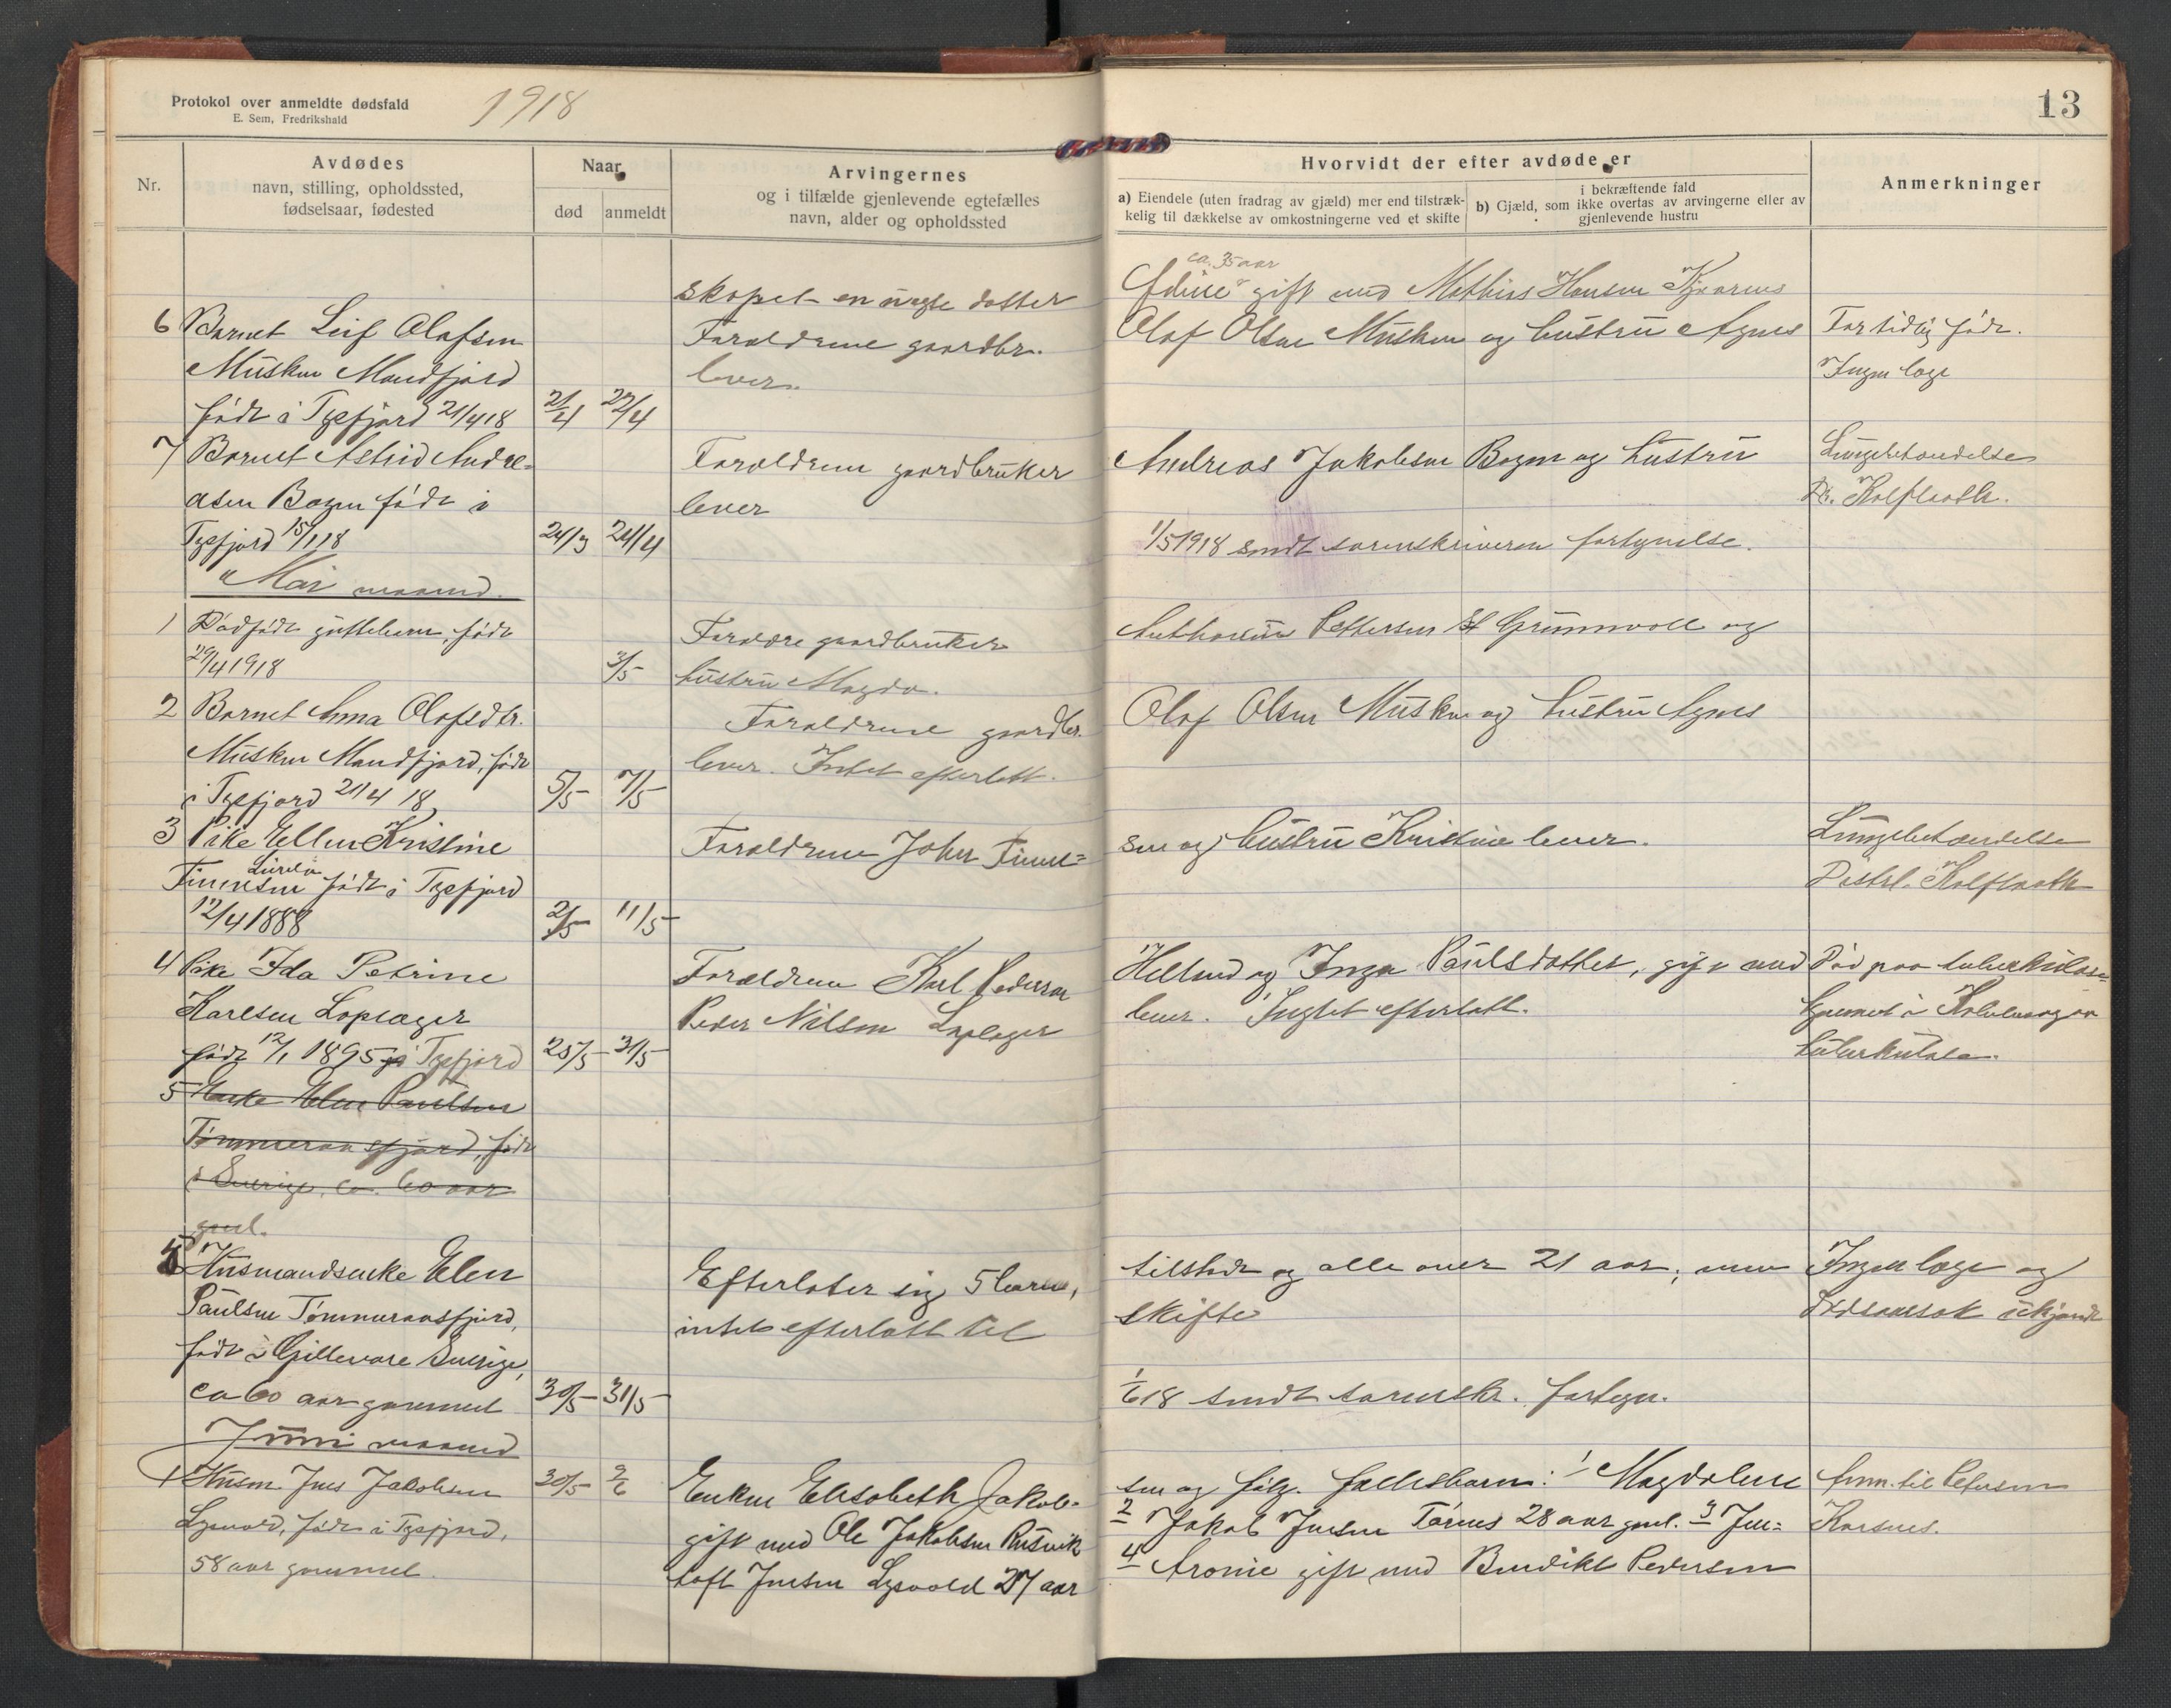 Protokol over anmeldte dødsfald
E. Sem, Fredrikshald
1918
13
Nr.
Avdødes
navn, stilling, opholdssted,
fødselsaar, fødested
Naar
død
anmeldt
Arvingernes
og i tilfælde gjenlevende egtefælles
navn, alder og opholdssted
Hvorvidt der efter avdøde er
a) Eiendele (uten fradrag av gjæld) mer end tilstræk-
kelig til dækkelse av omkostningerne ved et skifte
i bekræftende fald
b) Gjæld, som ikke overtas av arvingerne eller av
gjenlevende hustru
Anmerkninger
ca. 35 aar
skapet en uegte datter gift med Mathias Hansen
6 Barnet Leif Olafsen Forældrene gaardbr. Olaf Olsen Musken og hustru Agnes For tidlig født.
Musken Mandfjord lever. Ingen læge
født i Tysfjord 21/4 18 21/4 22/4
7 Barnet Astrid Andre- Forældrene gaardbruker Andreas Jakobsen Bogen og hustru Lungebetændelse
asen Bogen født i lever Dr. Kolflaath.
Tysfjord 15/1 18 24/3 24/4 1/5 1918 sendt sorenskriveren fortegnelse.
Mai maaned.
1 Dødfødt guttebarn, født Forældre gaardbruker Pettersen Grunnvoll og
29/4 1918 3/5 hustru Magda.
2 Barnet Anna Olafsdtr. Forældrene gaardbr. Olaf Olsen Musken og hustru Agnes
Musken Mandfjord, født lever. Intet efterlatt.
i Tysfjord 21/4 18 5/5 7/5
3 Pike Ellen Kristine Forældrene Johs Finne- sen og hustru Kristine lever. Lungebetændelse
Finnesen født i Tysfjord Distrl. Kolflaath
12/4 1888 2/5 11/5
4 Pike Ida Petrine Forældrene Karl Pedersen Helland og Inga Paulsdatter, gift med Død paa tuberkulose-
Karlsen Loplager Peder Nilsen Loplager lever. Intet efterlatt. hjemmet i
født 12/1 1895 i Tysfjord 25/5 31/5 tuberkulose.
5 Enke Elen Paulsen
Tømmeraasfjord, født
i Sverige, ca. 60 aar
gml.
5 Husmandsenke Elen Efterlater sig 5 barn, tilstede og alle over 21 aar; men Ingen læge og
Paulsen Tømmeraasfjord, intet efterlatt til skifte dødsaarsak ukjendt
født i Gillevare Sverige,
ca 60 aar gammel 30/5 31/5 1/6 18 sendt sorenskr. fortegn.
Juni maaned
1 Husm. Jens Jakobsen 30/5 2/6 Enken Elisabeth Jakob- sen og følg. fællesbarn: 1 Magdalene Anm. til Pedersen
Lysvold, født i Tysfjord, gift med Ole Jakobsen Rusvik 2 Jakob Jensen 28 aar gml. 3 Jen- Korsnes.
58 aar gammel. toft Jensen Lysvold 27 aar 4 Aronie gift med Bendikt Pedersen